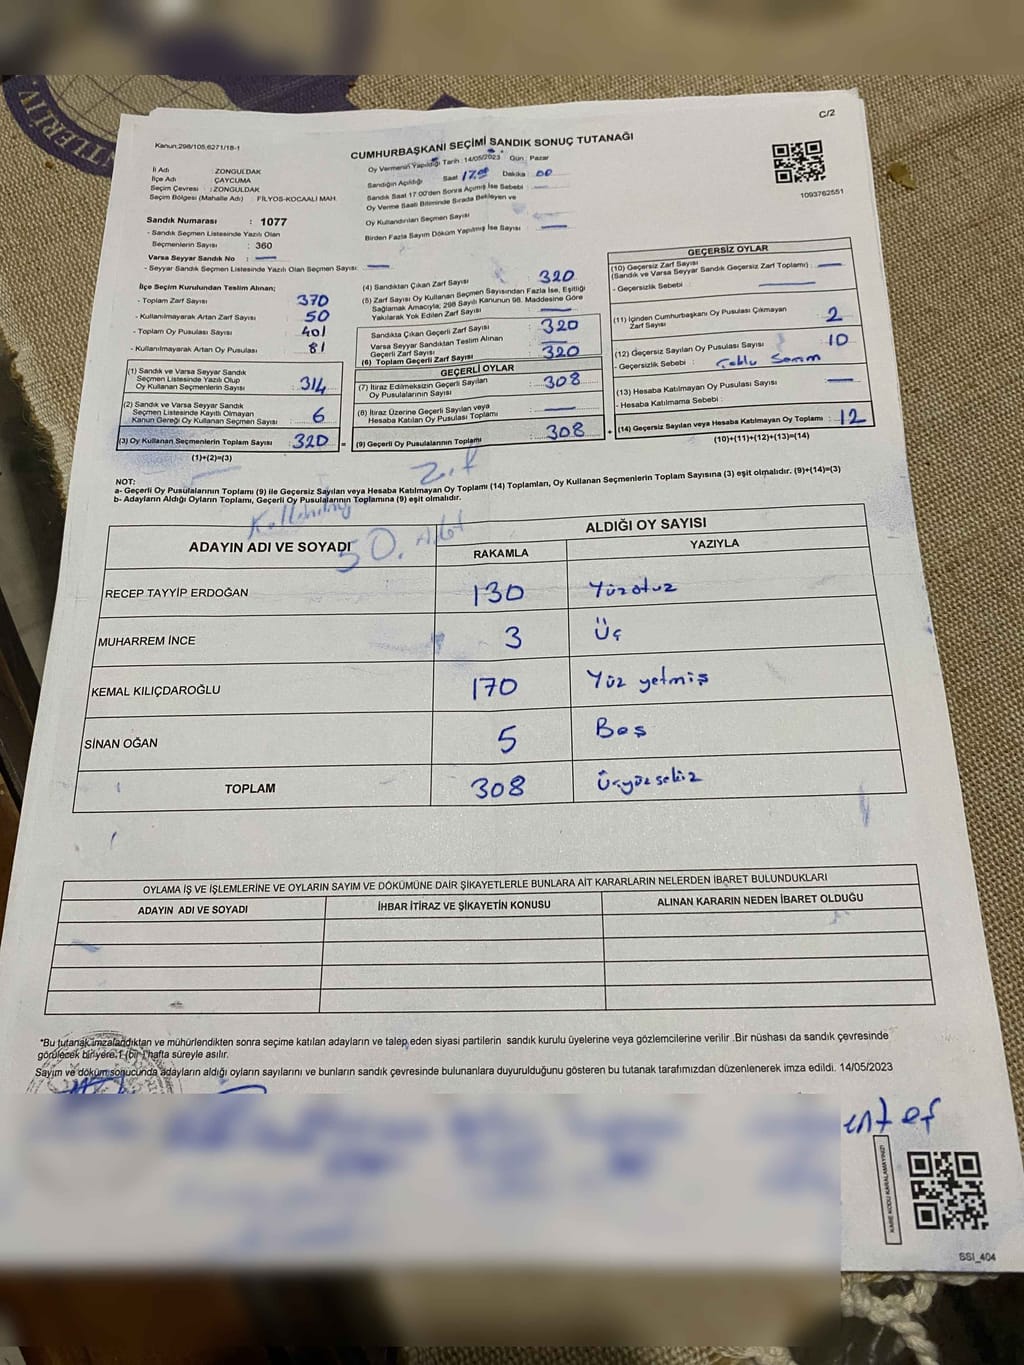 NTLERİ V.
C/2
Kanun;298/105,6271/18-1
CUMHURBAŞKANI SEÇİMİ SANDIK SONUÇ TUTANAĞI
Oy Vermenin Yapıldığı Tarih :14/05/2023 Gün : Pazar
İli Adı : ZONGULDAK
İlçe Adı : ÇAYCUMA
Seçim Çevresi : ZONGULDAK
Seçim Bölgesi (Mahalle Adı) : FİLYOS-KOCAALİ MAH.
Sandığın Açıldığı Saat 17.00 Dakika : 00
Sandık Saat 17:00'den Sonra Açımış İse Sebebi :
Oy Verme Saati Bitiminde Sırada Bekleyen ve
Oy Kullandırılan Seçmen Sayısı :
Birden Fazla Sayım Döküm Yapılmış İse Sayısı :
1093762551
Sandık Numarası : 1077
- Sandık Seçmen Listesinde Yazılı Olan
Seçmenlerin Sayısı : 360
Varsa Seyyar Sandık No :
- Seyyar Sandık Seçmen Listesinde Yazılı Olan Seçmen Sayısı:
İlçe Seçim Kurulundan Teslim Alınan;
- Toplam Zarf Sayısı : 370
- Kullanılmayarak Artan Zarf Sayısı : 50
- Toplam Oy Pusulası Sayısı : 401
- Kullanılmayarak Artan Oy Pusulası : 81
(1) Sandık ve Varsa Seyyar Sandık
Seçmen Listesinde Yazılı Olup
Oy Kullanan Seçmenlerin Sayısı : 314
(2) Sandık ve Varsa Seyyar Sandık
Seçmen Listesinde Kayıtlı Olmayan
Kanun Gereği Oy Kullanan Seçmen Sayısı : 6
(3) Oy Kullanan Seçmenlerin Toplam Sayısı : 320 =
(1)+(2)=(3)
(4) Sandıktan Çıkan Zarf Sayısı : 320
(5) Zarf Sayısı Oy Kullanan Seçmen Sayısından Fazla İse, Eşitliği
Sağlamak Amacıyla; 298 Sayılı Kanunun 98. Maddesine Göre
Yakılarak Yok Edilen Zarf Sayısı :
Sandıkta Çıkan Geçerli Zarf Sayısı : 320
Varsa Seyyar Sandıktan Teslim Alınan
Geçerli Zarf Sayısı :
(6) Toplam Geçerli Zarf Sayısı : 320
GEÇERLİ OYLAR
(7) İtiraz Edilmeksizin Geçerli Sayılan
Oy Pusulalarının Sayısı : 308
(8) İtiraz Üzerine Geçerli Sayılan veya
Hesaba Katılan Oy Pusulası Toplamı :
(9) Geçerli Oy Pusulalarının Toplamı : 308 +
GEÇERSİZ OYLAR
(10) Geçersiz Zarf Sayısı
(Sandık ve Varsa Seyyar Sandık Geçersiz Zarf Toplamı) :
- Geçersizlik Sebebi :
(11) İçinden Cumhurbaşkanı Oy Pusulası Çıkmayan
Zarf Sayısı : 2
(12) Geçersiz Sayılan Oy Pusulası Sayısı : 10
- Geçersizlik Sebebi :
(13) Hesaba Katılmayan Oy Pusulası Sayısı :
- Hesaba Katılmama Sebebi :
(14) Geçersiz Sayılan veya Hesaba Katılmayan Oy Toplamı : 12
(10)+(11)+(12)+(13)=(14)
NOT:
a- Geçerli Oy Pusulalarının Toplamı (9) ile Geçersiz Sayılan veya Hesaba Katılmayan Oy Toplamı (14) Toplamları, Oy Kullanan Seçmenlerin Toplam Sayısına (3) eşit olmalıdır. (9)+(14)=(3)
b- Adayların Aldığı Oyların Toplamı, Geçerli Oy Pusulalarının Toplamına (9) eşit olmalıdır.
50. Adet
ADAYIN ADI VE SOYADI
ALDIĞI OY SAYISI
RAKAMLA YAZIYLA
RECEP TAYYİP ERDOĞAN 130 Yüzotuz
MUHARREM İNCE 3 Üç
KEMAL KILIÇDAROĞLU 170 Yüz yetmiş
SİNAN OĞAN 5 Beş
TOPLAM 308 Üçyüzsekiz
OYLAMA İŞ VE İŞLEMLERİNE VE OYLARIN SAYIM VE DÖKÜMÜNE DAİR ŞİKAYETLERLE BUNLARA AİT KARARLARIN NELERDEN İBARET BULUNDUKLARI
ADAYIN ADI VE SOYADI İHBAR İTİRAZ VE ŞİKAYETİN KONUSU ALINAN KARARIN NEDEN İBARET OLDUĞU
*Bu tutanak imzalandıktan ve mühürlendikten sonra seçime katılan adayların ve talep eden siyasi partilerin sandık kurulu üyelerine veya gözlemcilerine verilir .Bir nüshası da sandık çevresinde
görülecek bir yere 1 (bir) hafta süreyle asılır.
Sayım ve döküm sonucunda adayların aldığı oyların sayılarını ve bunların sandık çevresinde bulunanlara duyurulduğunu gösteren bu tutanak tarafımızdan düzenlenerek imza edildi. 14/05/2023
KARE KODU KARALAMAYINIZ!
SSI_404